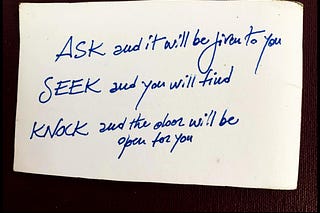 ASK and it will be given to you
SEEK and you will find
KNOCK and the door will be
open for you